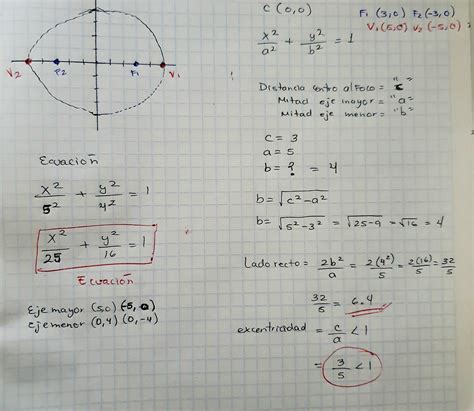 C (0,0)
F₁ (3,0) F₂ (-3,0)
V₁(5,0) V₂ (-5,0)
x²/a² + y²/b² = 1
V₂ F₂ F₁ V₁
Distancia centro al Foco = "c"
Mitad eje mayor = "a"
Mitad eje menor = "b"
c = 3
a = 5
b = ? = 4
b = √c²-a²
b = √5²-3² = √25-9 = √16 = 4
Ecuación
x²/5² + y²/4² = 1
x²/25 + y²/16 = 1
Ecuación
Eje mayor (5,0) (-5,0)
Eje menor (0,4) (0,-4)
Lado recto = 2b²/a = 2(4²)/5 = 2(16)/5 = 32/5
32/5 = 6.4
excentricidad = c/a < 1
= 3/5 < 1